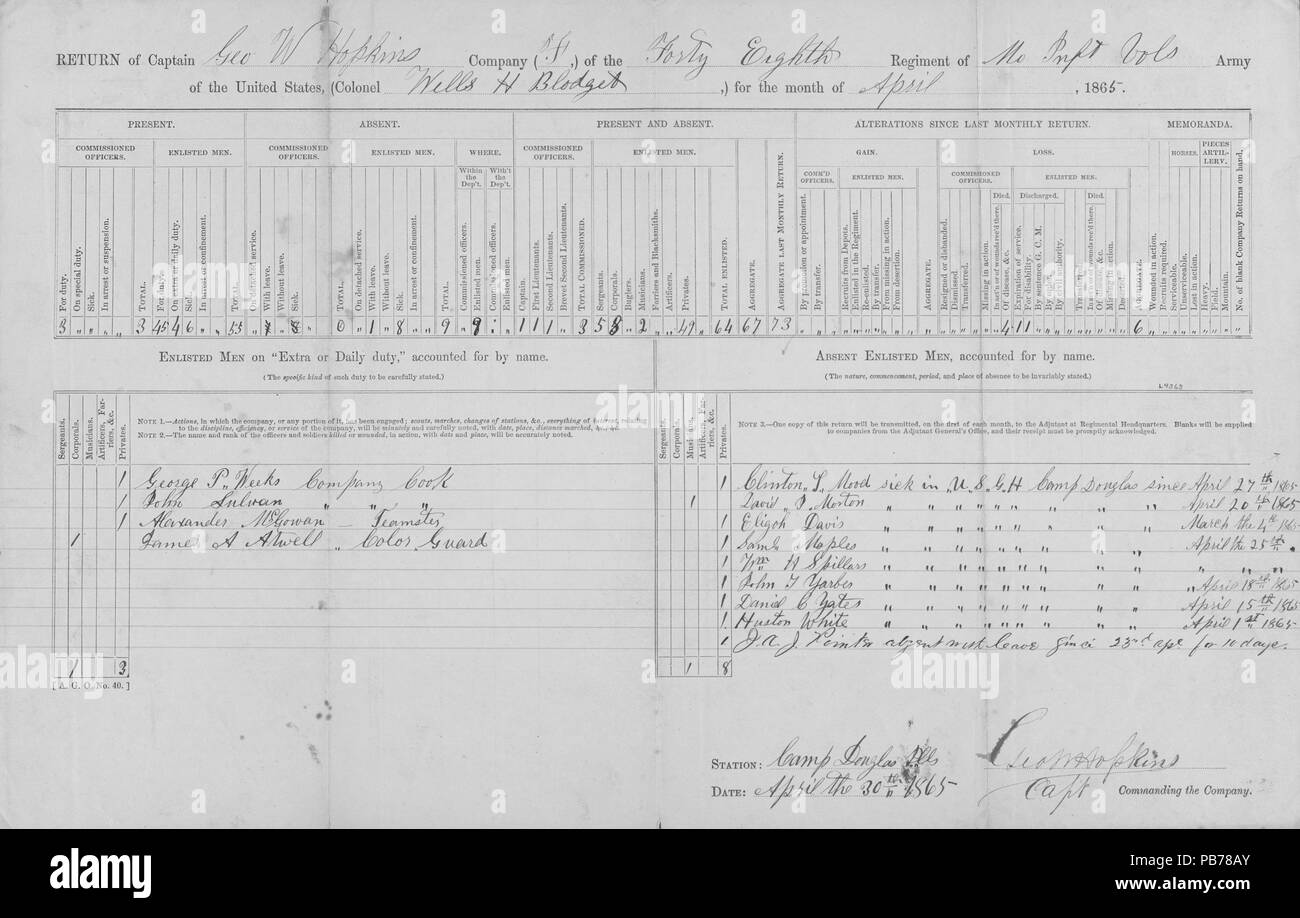 RETURN of Captain Geo W Hopkins Company (F,) of the Forty Eighth Regiment of Mo Inft Vols Army
of the United States, (Colonel Wells H Blodget ,) for the month of April , 1865.
PRESENT. ABSENT. PRESENT AND ABSENT. ALTERATIONS SINCE LAST MONTHLY RETURN. MEMORANDA.
COMMISSIONED OFFICERS. ENLISTED MEN. COMMISSIONED OFFICERS. ENLISTED MEN. WHERE. COMMISSIONED OFFICERS. ENLISTED MEN. GAIN. LOSS. HORSES. PIECES ARTILLERY.
Within the Dep't. With't the Dep't. COMM'D OFFICERS. ENLISTED MEN. COMMISSIONED OFFICERS. ENLISTED MEN.
Died. Discharged. Died.
For duty. On special duty. Sick. In arrest or suspension. TOTAL. For duty. On extra or daily duty. Sick. In arrest or confinement. TOTAL. On detached service. With leave. Without leave. Sick. TOTAL. On detached service. With leave. Without leave. Sick. In arrest or confinement. TOTAL. Commissioned officers. Enlisted men. Commissioned officers. Enlisted men. Captain. First Lieutenants. Second Lieutenants. Brevet Second Lieutenants. TOTAL COMMISSIONED. Sergeants. Corporals. Buglers. Musicians. Farriers and Blacksmiths. Artificers. Privates. TOTAL ENLISTED. AGGREGATE. AGGREGATE LAST MONTHLY RETURN. By promotion or appointment. By transfer. Recruits from Depots. Enlisted in the Regiment. Re-enlisted. By transfer. From missing in action. From desertion. AGGREGATE. Resigned or disbanded. Dismissed. Transferred. Missing in action. In action or of wounds rec'd there. Of disease, &c. Expiration of service. For disability. By sentence G. C. M. By civil authority. Transferred. In action or of wounds rec'd there. Of disease, &c. Missing in action. Deserted. AGGREGATE. Wounded in action. Recruits required. Serviceable. Unserviceable. Lost in action. Heavy. Field. Mountain. No. of blank Company Returns on hand.
3 " " " " 3 45 4 6 " " 55 " " " 0 " 1 " 8 " 9 " 9 " " 1 1 1 " 3 5 8 " 2 " " 49 64 67 73 " " " " " " " " " " " " " " 4 1 1 " " " " " " " " 6 " " " " " " " " "
ENLISTED MEN on "Extra or Daily duty," accounted for by name. ABSENT ENLISTED MEN, accounted for by name.
(The specific kind of such duty to be carefully stated.) (The nature, commencement, period, and place of absence to be invariably stated.)
L4363
Sergeants. Corporals. Musicians. Artificers, Farriers, &c. Privates.
NOTE 1.—Actions, in which the company, or any portion of it, has been engaged; scouts, marches, changes of stations, &c., everything of interest, relating
to the discipline, efficiency, or service of the company, will be minutely and carefully noted, with date, place, distance marched, &c., &c.
NOTE 2.—The name and rank of the officers and soldiers killed or wounded, in action, with date and place, will be accurately noted.
Sergeants. Corporals. Musicians. Artificers, Farriers, &c. Privates.
NOTE 3.—One copy of this return will be transmitted, on the first of each month, to the Adjutant at Regimental Headquarters. Blanks will be supplied
to companies from the Adjutant General's Office, and their receipt must be promptly acknowledged.
1 George P. Weeks Company Cook
1 John " "
1 Alexander McGowan — Teamster
1 James A Atwell " Color Guard
1 3
[A. G. O. No. 40.]
1 Clinton S. Mood sick in U.S.G.H Camp Douglas since April 27th 1865
1 David P. Morton " " " " " " " " April 20th 1865
1 Eligoh Davis " " " " " " " " March the 4th 1865
1 Saml Maples " " " " " " " " April the 25th "
1 Wm H Spillars " " " " " " " " " " "
1 John T Yarbes " " " " " " " " April 18th 1865
1 Daniel C Yates " " " " " " " " April 15th 1865
1 Huston White " " " " " " " " April 1st 1865
1 J. A. J. absent with leave since 23rd apr for 10 days.
1 8
STATION: Camp Douglas Ills
DATE: April the 30th 1865
Geo W Hopkins
Capt Commanding the Company.
alamy
alamy
Image ID: PB78AY
www.alamy.com